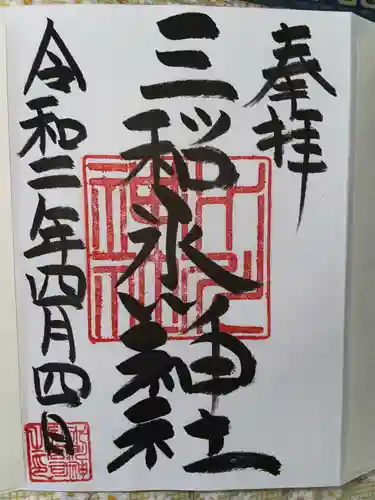 奉拝
三ツ和氷川神社
令和二年四月四日